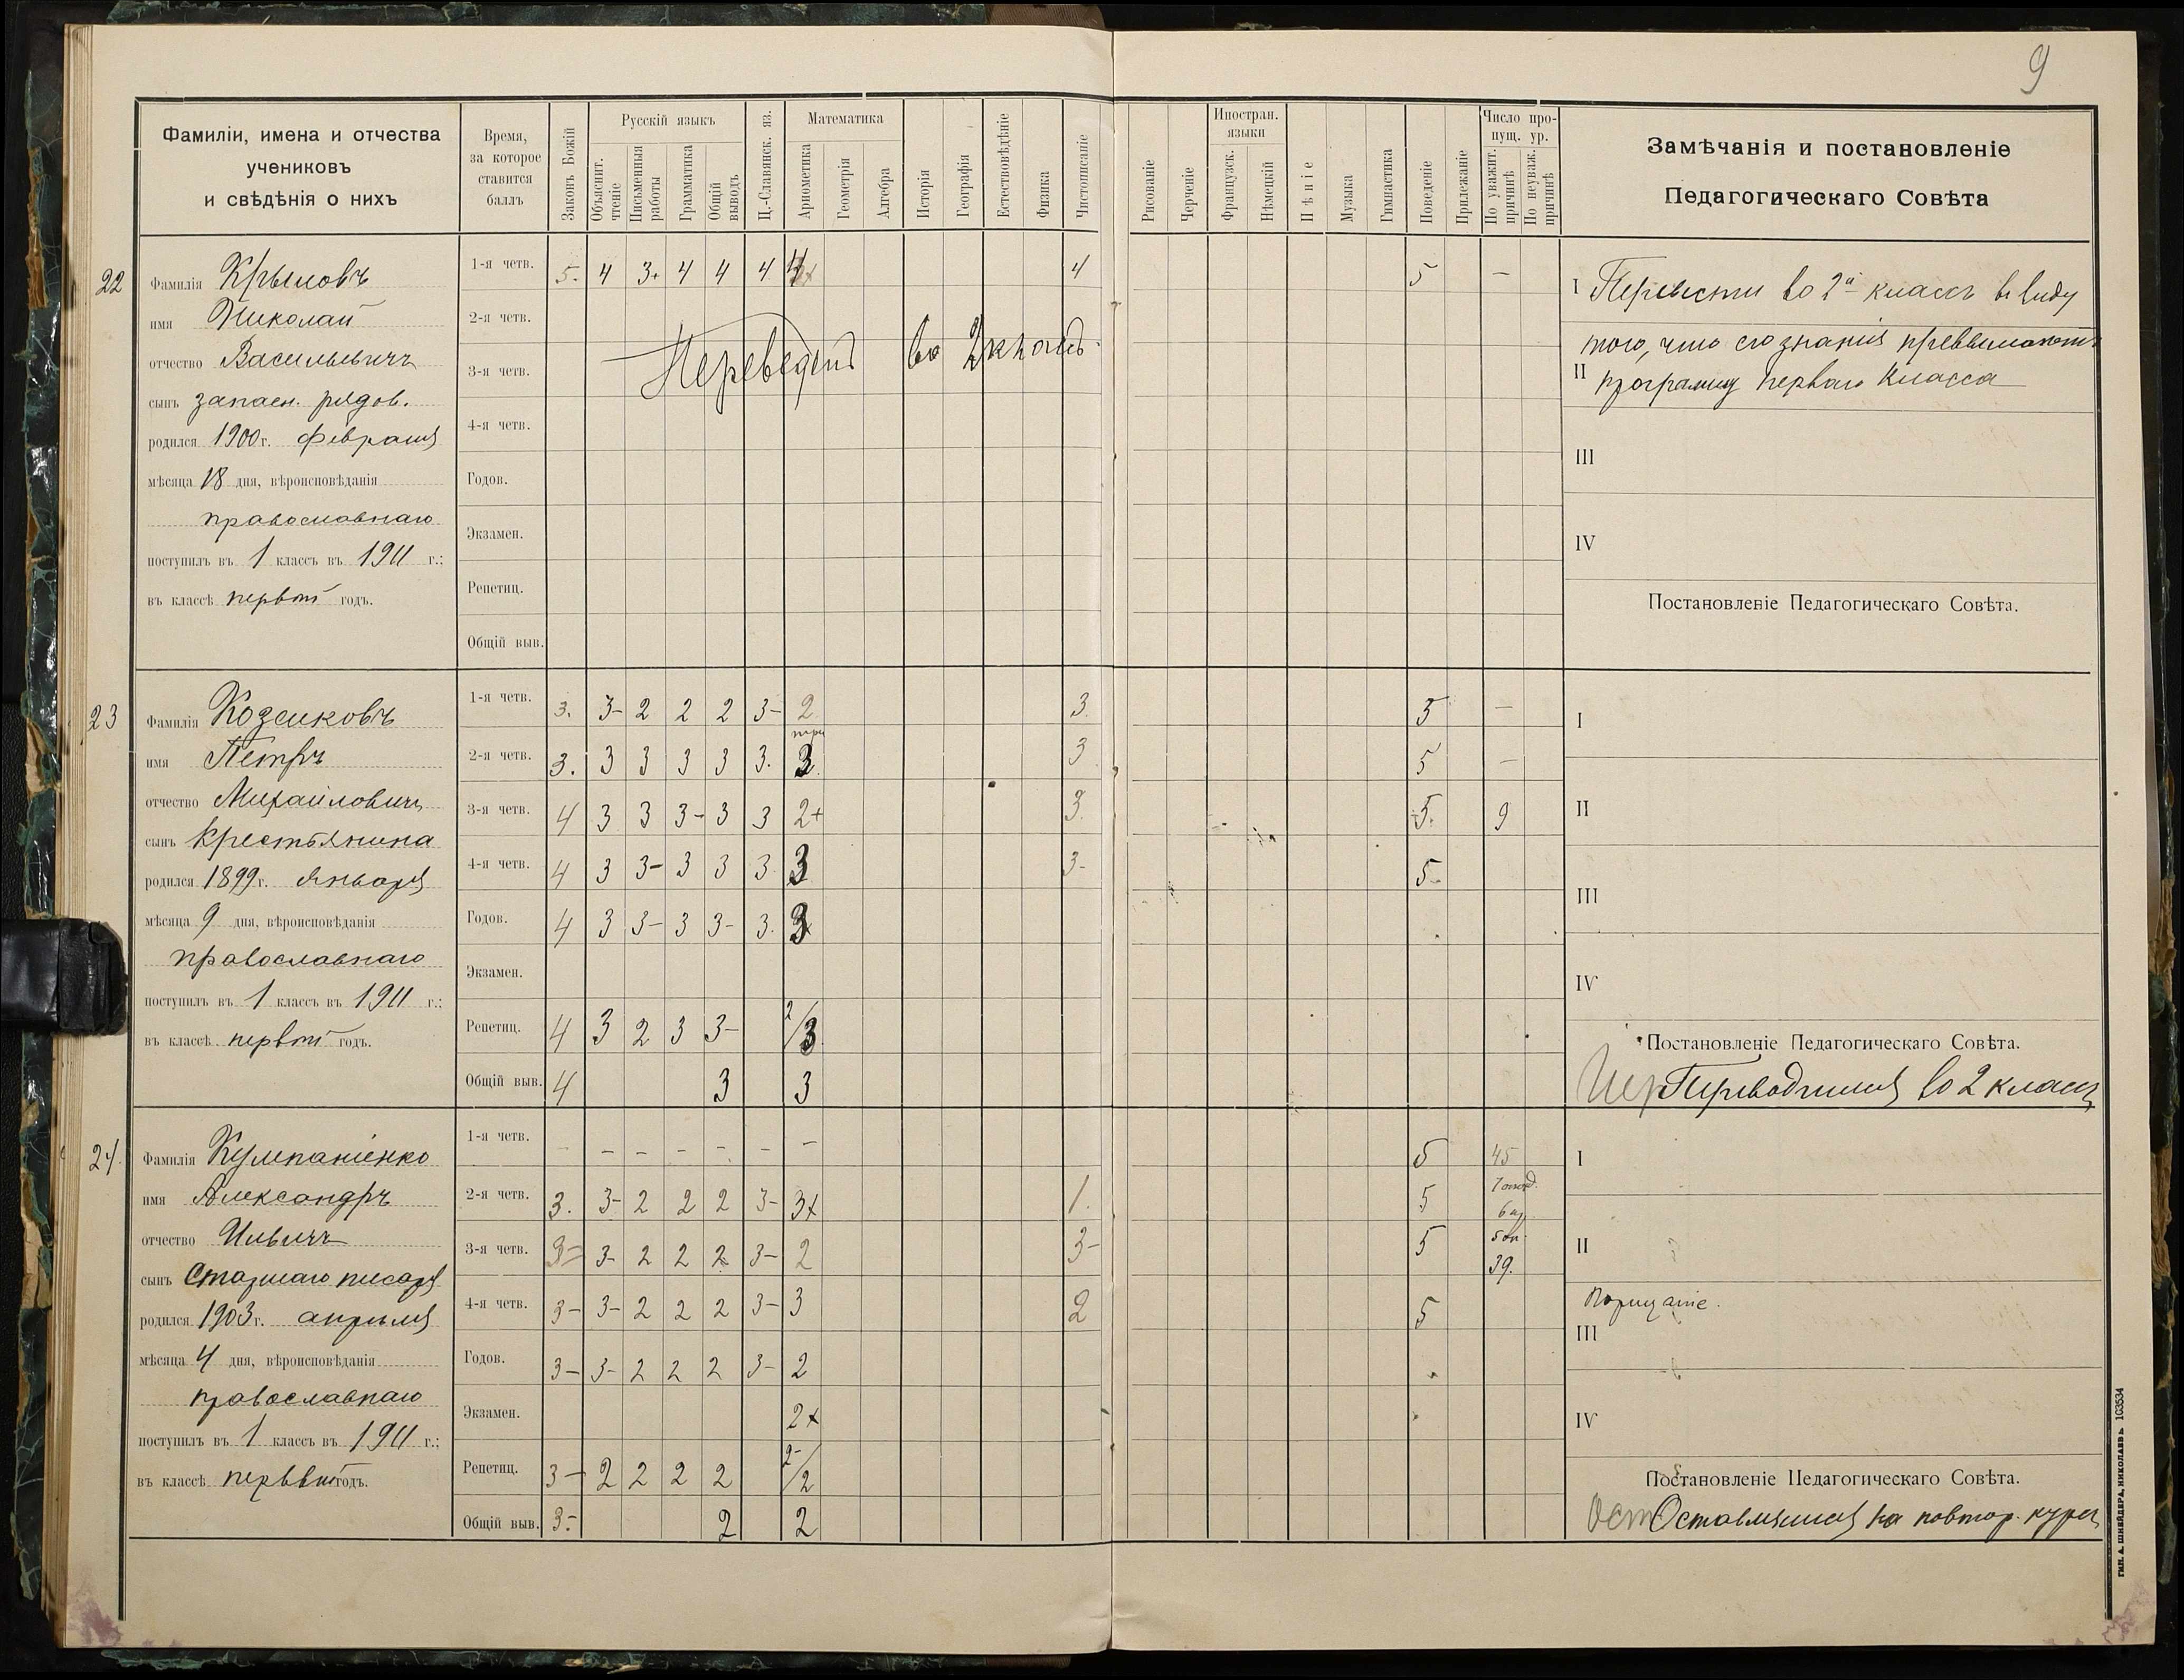 9
Фамиліи, имена и отчества
учениковъ
и свѣдѣнія о нихъ
Время,
за которое
ставится
баллъ
Законъ Божій
Русскій языкъ
Объяснит. чтеніе
Письменныя работы
Грамматика
Общій выводъ
Ц.-Славянск. яз.
Математика
Ариөметика
Геометрія
Алгебра
Исторія
Географія
Естествовѣдѣніе
Физика
Чистописаніе
Рисованіе
Черченіе
Иностран. языки
Французск.
Нѣмецкій
Пѣніе
Музыка
Гимнастика
Поведеніе
Прилежаніе
Число про-
пущ. ур.
По уважит. причинѣ
По неуваж. причинѣ
Замѣчанія и постановленіе
Педагогическаго Совѣта
22
Фамилія Крыловъ
имя Николай
отчество Васильевичъ
сынъ запасн. рядов.
родился 1900 г. февраля
мѣсяца 18 дня, вѣроисповѣданія
православнаго
поступилъ въ 1 классъ въ 1911 г.;
въ классѣ первый годъ.
1-я четв. 5- 4 3+ 4 4 4 4 4 5 –
2-я четв.
Переведенъ во 2 классъ
3-я четв.
4-я четв.
Годов.
Экзамен.
Репетиц.
Общій выв.
I Перевести во 2й классъ въ виду
того, что его знанія превышаютъ
II программу перваго класса
III
IV
Постановленіе Педагогическаго Совѣта.
23
Фамилія Козликовъ
имя Петръ
отчество Михайловичъ
сынъ крестьянина
родился 1899 г. января
мѣсяца 9 дня, вѣроисповѣданія
православнаго
поступилъ въ 1 классъ въ 1911 г.;
въ классѣ первый годъ.
1-я четв. 3. 3- 2 2 2 3- 2 3. 5 –
2-я четв. 3. 3 3 3 3 3. 3 3 5 –
3-я четв. 4 3 3 3- 3 3 2+ 3. 5. 9
4-я четв. 4 3 3- 3 3 3 3 3- 5-
Годов. 4 3 3- 3 3- 3. 3
Экзамен.
Репетиц. 4 3 2 3 3- 2/3
Общій выв. 4 3 3
I
II
III
IV
Постановленіе Педагогическаго Совѣта.
Пер Переводится во 2 классъ
24
Фамилія Кумпаніенко
имя Александръ
отчество Ильичъ
сынъ Старшаго писаря
родился 1903 г. апрѣля
мѣсяца 4 дня, вѣроисповѣданія
православнаго
поступилъ въ 1 классъ въ 1911 г.;
въ классѣ первый годъ.
1-я четв. – – – – – – – 5 45
2-я четв. 3. 3- 2 2 2 3- 3+ 1. 5
3-я четв. 3- 3- 2 2 2 3- 2 3- 5 5 оп. 39.
4-я четв. 3- 3- 2 2 2 3- 3 2 5
Годов. 3- 3- 2 2 2 3- 2
Экзамен. 2+
Репетиц. 3- 2 2 2 2 2-/2
Общій выв. 3- 2 2
I
II
Порицаніе.
III
IV
Постановленіе Педагогическаго Совѣта.
Ост Оставляется на повтор. курсъ
ТИП. А. ШНЕЙДЕРА, НИКОЛАЕВЪ 103534